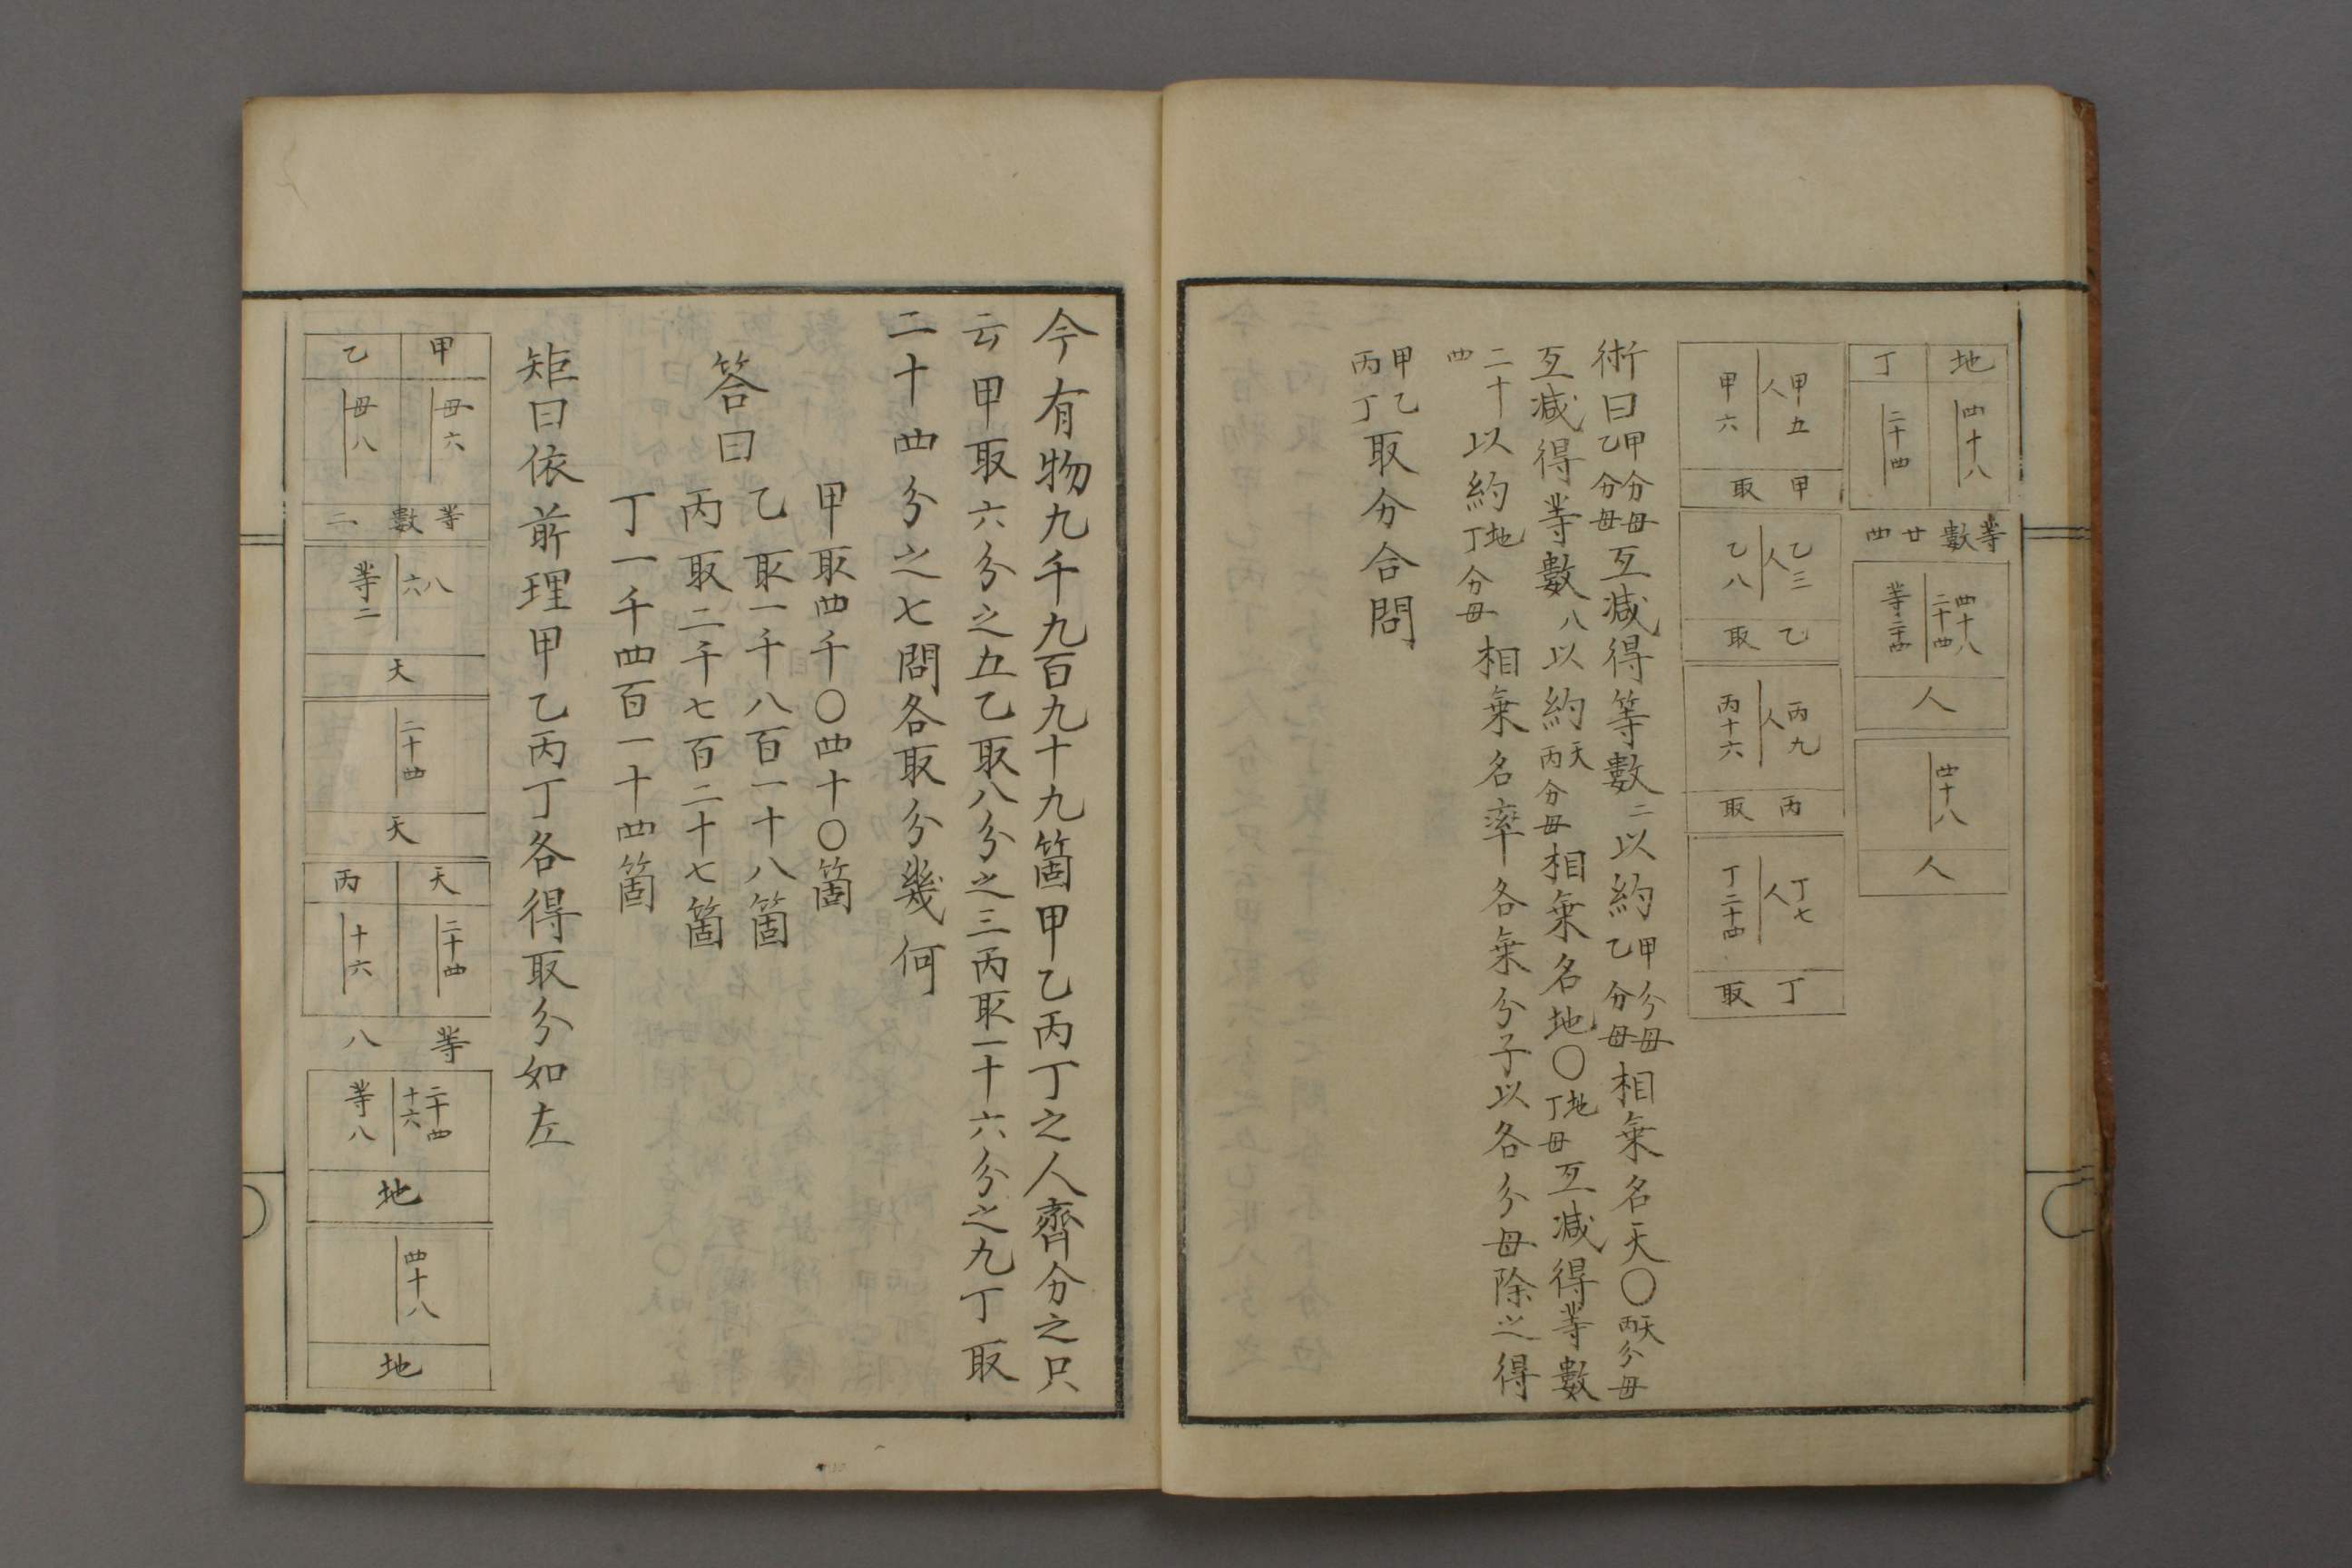 地 四十八
丁 二十四
等數廿四
四十八
二十四
等二十四
人
四十八
人
甲五
人
甲六
甲取
乙三
人
乙八
乙取
丙九
人
丙十六
丙取
丁七
人
丁二十四
丁取
術曰甲分母乙分母互減得等數二以約甲分母乙分母相乗名天〇天丙分母
互減得等數八以約天丙分母相乗名地〇地丁母互減得等數
二十四以約地丁分母相乗名率各乗分子以各分母除之得
甲乙丙丁取分合問
今有物九千九百九十九箇甲乙丙丁之人齊分之只
云甲取六分之五乙取八分之三丙取一十六分之九丁取
二十四分之七問各取分幾何
甲取四千〇四十〇箇
答曰乙取一千八百一十八箇
丙取二千七百二十七箇
丁一千四百一十四箇
矩曰依前理甲乙丙丁各得取分如左
甲 母六
乙 母八
等數二
八
六
等二
天
二十四
天
天 二十四
丙 十六
等八
二十四
十六
等八
地
四十八
地